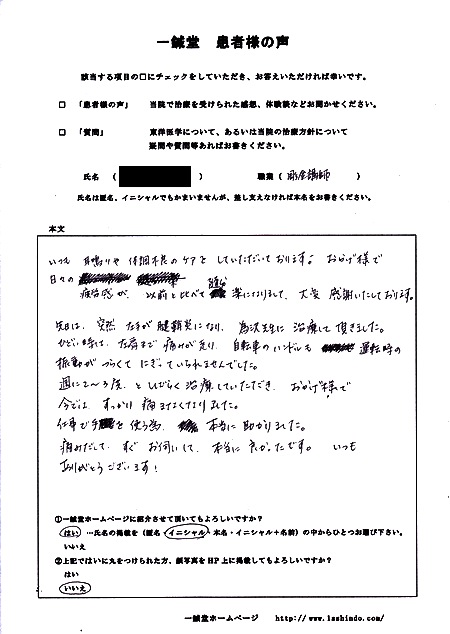 一鍼堂 患者様の声
該当する項目の□にチェックをしていただき、お答えいただければ幸いです。
□ 「患者様の声」 当院で治療を受けられた感想、体験談などお聞かせください。
□ 「質問」 東洋医学について、あるいは当院の治療方針について
疑問や質問等あればお書きください。
氏名 ( ) 職業 ( 彫金講師 )
氏名は匿名、イニシャルでもかまいませんが、差し支えなければ本名をお書きください。
本文
いつも 耳鳴りや体調不良のケアをしていただいております。おかげ様で
日々の
疲労感が、以前と比べて 随分 楽になりまして、大変 感謝いたしております。
先日は、突然 左手が腱鞘炎になり、 先生に治療して頂きました。
ひどい時は、左肩まで痛みが走り、自転車のハンドルも 運転時の
振動がつらくて にぎっていられませんでした。
週に2〜3度、としばらく治療していただき、おかげ様で
今では、すっかり痛まなくなりました。
仕事で手を使う為、本当に助かりました。
痛みだして、すぐ お伺いして、本当に良かったです。 いつも
ありがとうございます!
①一鍼堂ホームページに紹介させて頂いてもよろしいですか?
はい …氏名の掲載を (匿名・イニシャル・本名・イニシャル+名前) の中からひとつお選び下さい。
いいえ
②上記ではいに丸をつけられた方、顔写真をHP上に掲載してもよろしいですか?
はい
いいえ
一鍼堂ホームページ http://www.lashindo.com/